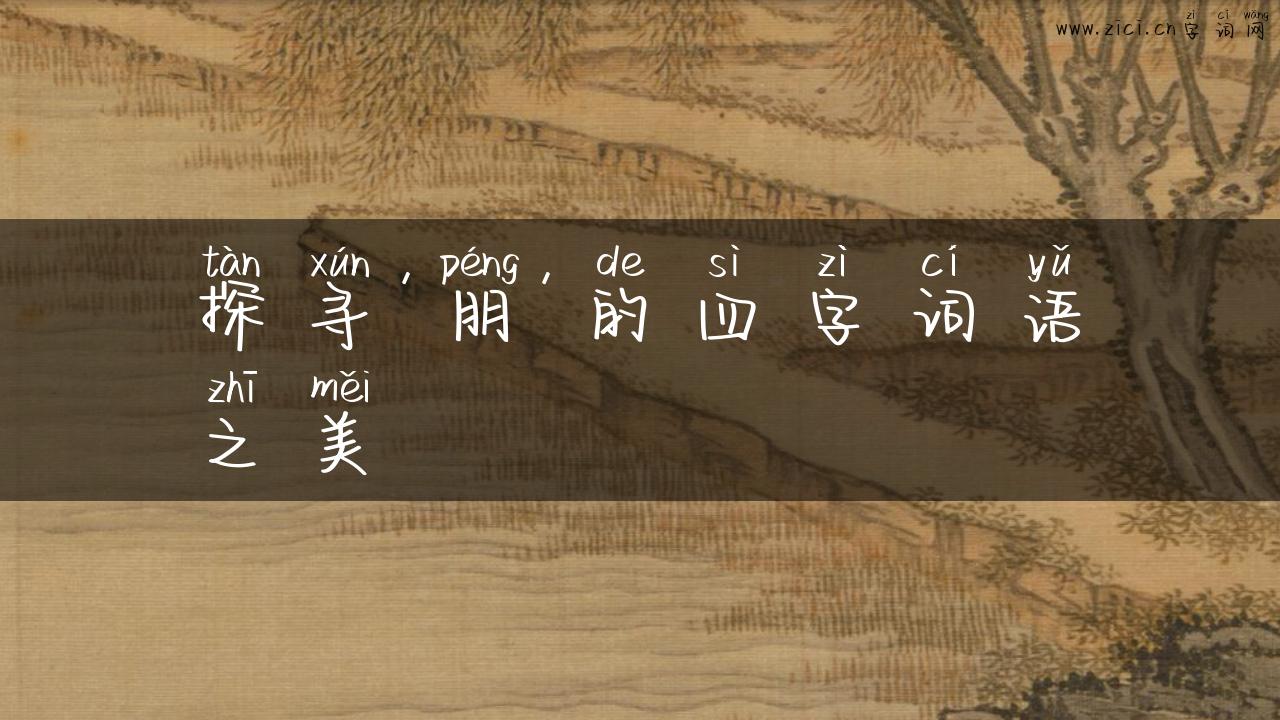 zì cí wǎng
www.zici.cn字词网
tàn xún , péng , de sì zì cí yǔ
探寻 朋 的四字词语
zhī měi
之美